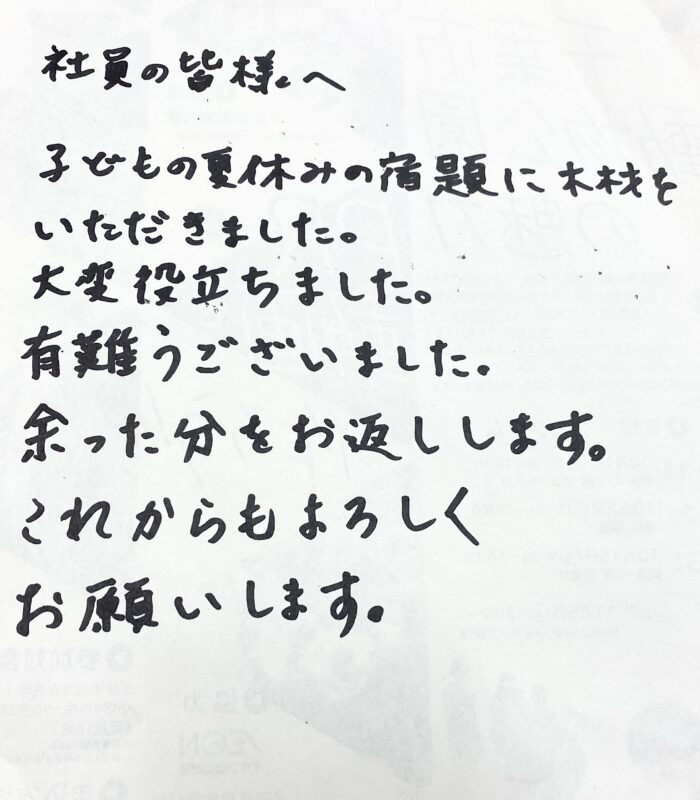 社員の皆様へ
子どもの夏休みの宿題に木材を
いただきました。
大変役立ちました。
有難うございました。
余った分をお返しします。
これからもよろしく
お願いします。